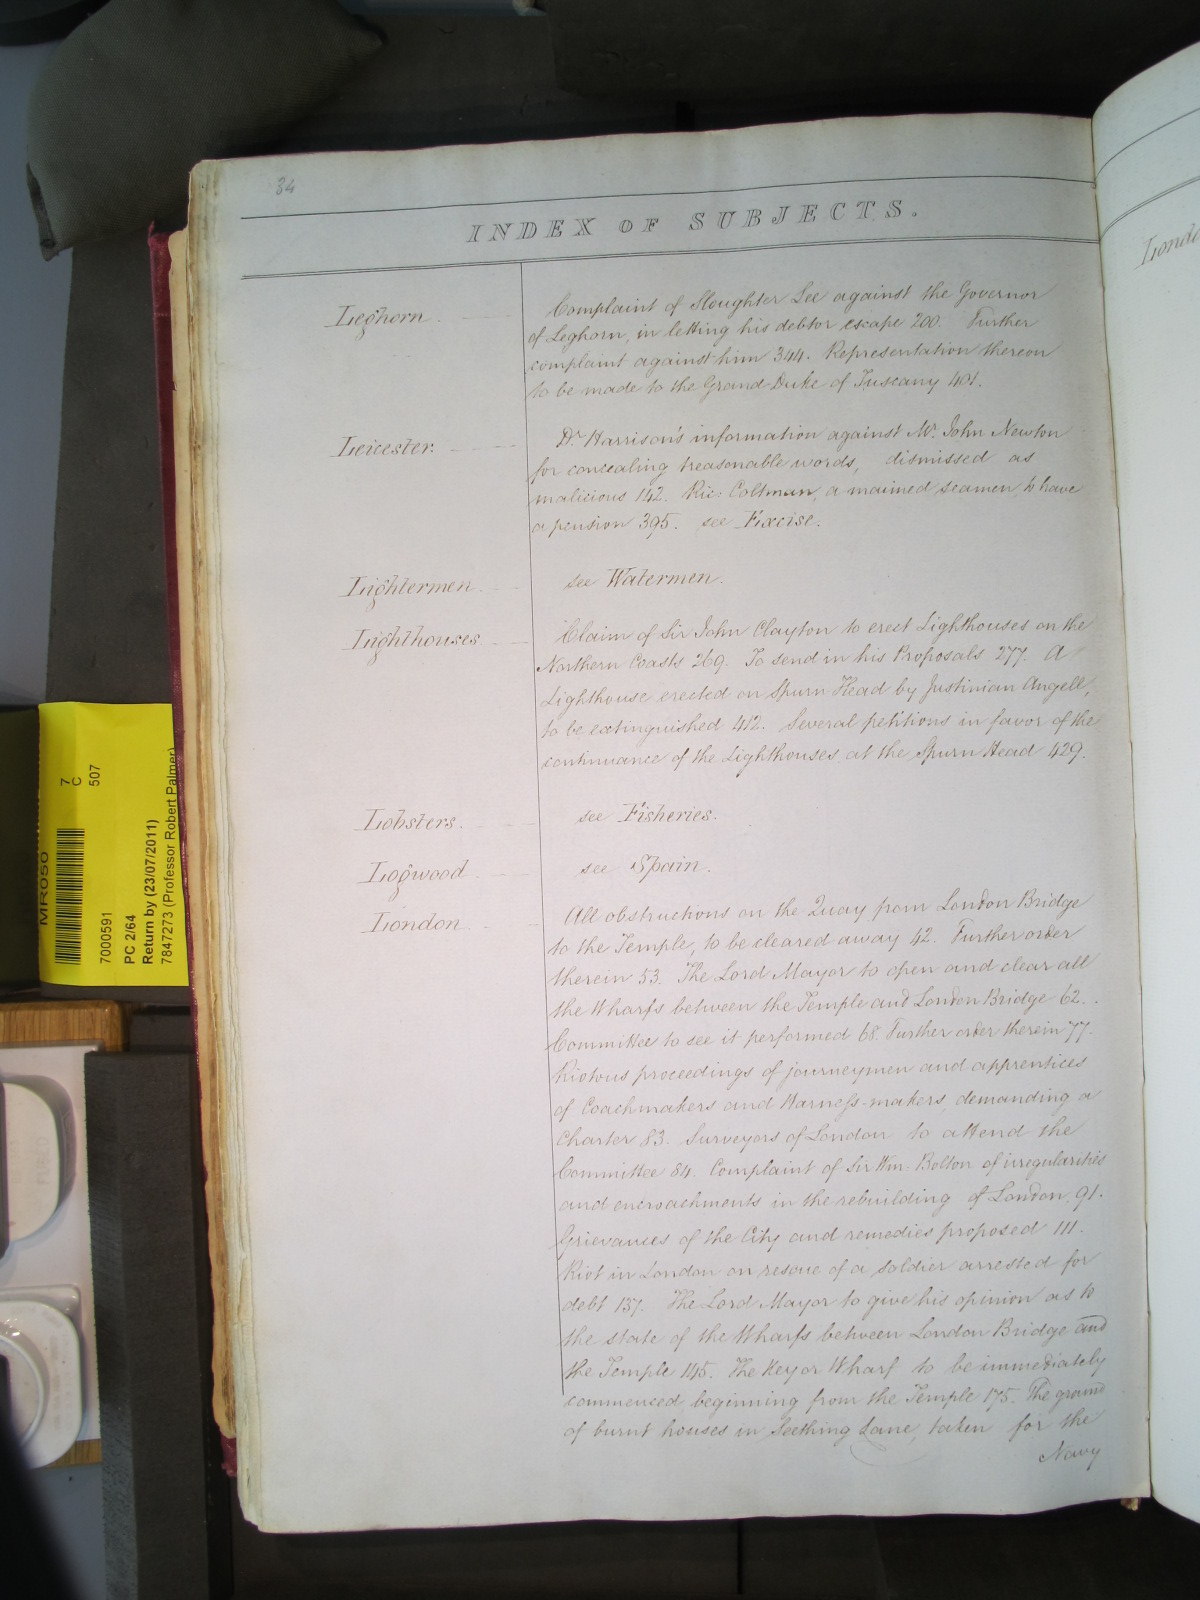 34
INDEX OF SUBJECTS.
Leghorn
Complaint of Sloughter Lee against the Governor
of Leghorn, in letting his debtor escape 200. Further
complaint against him 344. Representation thereon
to be made to the Grand Duke of Tuscany 401.
Leicester.
Dr Harrison's information against Mr. John Newton
for concealing treasonable words, dismissed as
malicious 142. Ric: Coltman, a maimed seamen, to have
a pension 395. see Excise.
Lightermen
see Watermen.
Lighthouses
Claim of Sir John Clayton to erect Lighthouses on the
Northern Coasts 269. To send in his Proposals 277. A
Lighthouse erected on Spurn Head by Justinian Angell,
to be extinguished 412. Several petitions in favor of the
continuance of the Lighthouses at the Spurn Head 429.
Lobsters.
see Fisheries.
Logwood
see Spain.
London.
All obstructions on the Quay from London Bridge
to the Temple, to be cleared away 42. Further order
therein 53. The Lord Mayor to open and clear all
the Wharfs between the Temple and London Bridge 62.
Committee to see it performed 68. Further order therein 77.
Riotous proceedings of journeymen and apprentices
of Coachmakers and Harness-makers, demanding a
Charter 83. Surveyors of London to attend the
Committee 84. Complaint of Sir Wm: Bolton of irregularities
and encroachments in the rebuilding of London, 91.
Grievances of the City and remedies proposed 111.
Riot in London on rescue of a soldier arrested for
debt 137. The Lord Mayor to give his opinion as to
the state of the Wharfs between London Bridge and
the Temple 145. The Key or Wharf to be immediately
commenced beginning from the Temple 175. The ground
of burnt houses in Seething Lane, taken for the
Navy
Lond
MR050
7
C
507
7000591
PC 2/64
Return by (23/07/2011)
7847273 (Professor Robert Palmer)